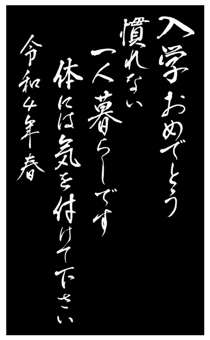 入学おめでとう
慣れない
一人暮らしです
体には気を付けて下さい
令和4年春